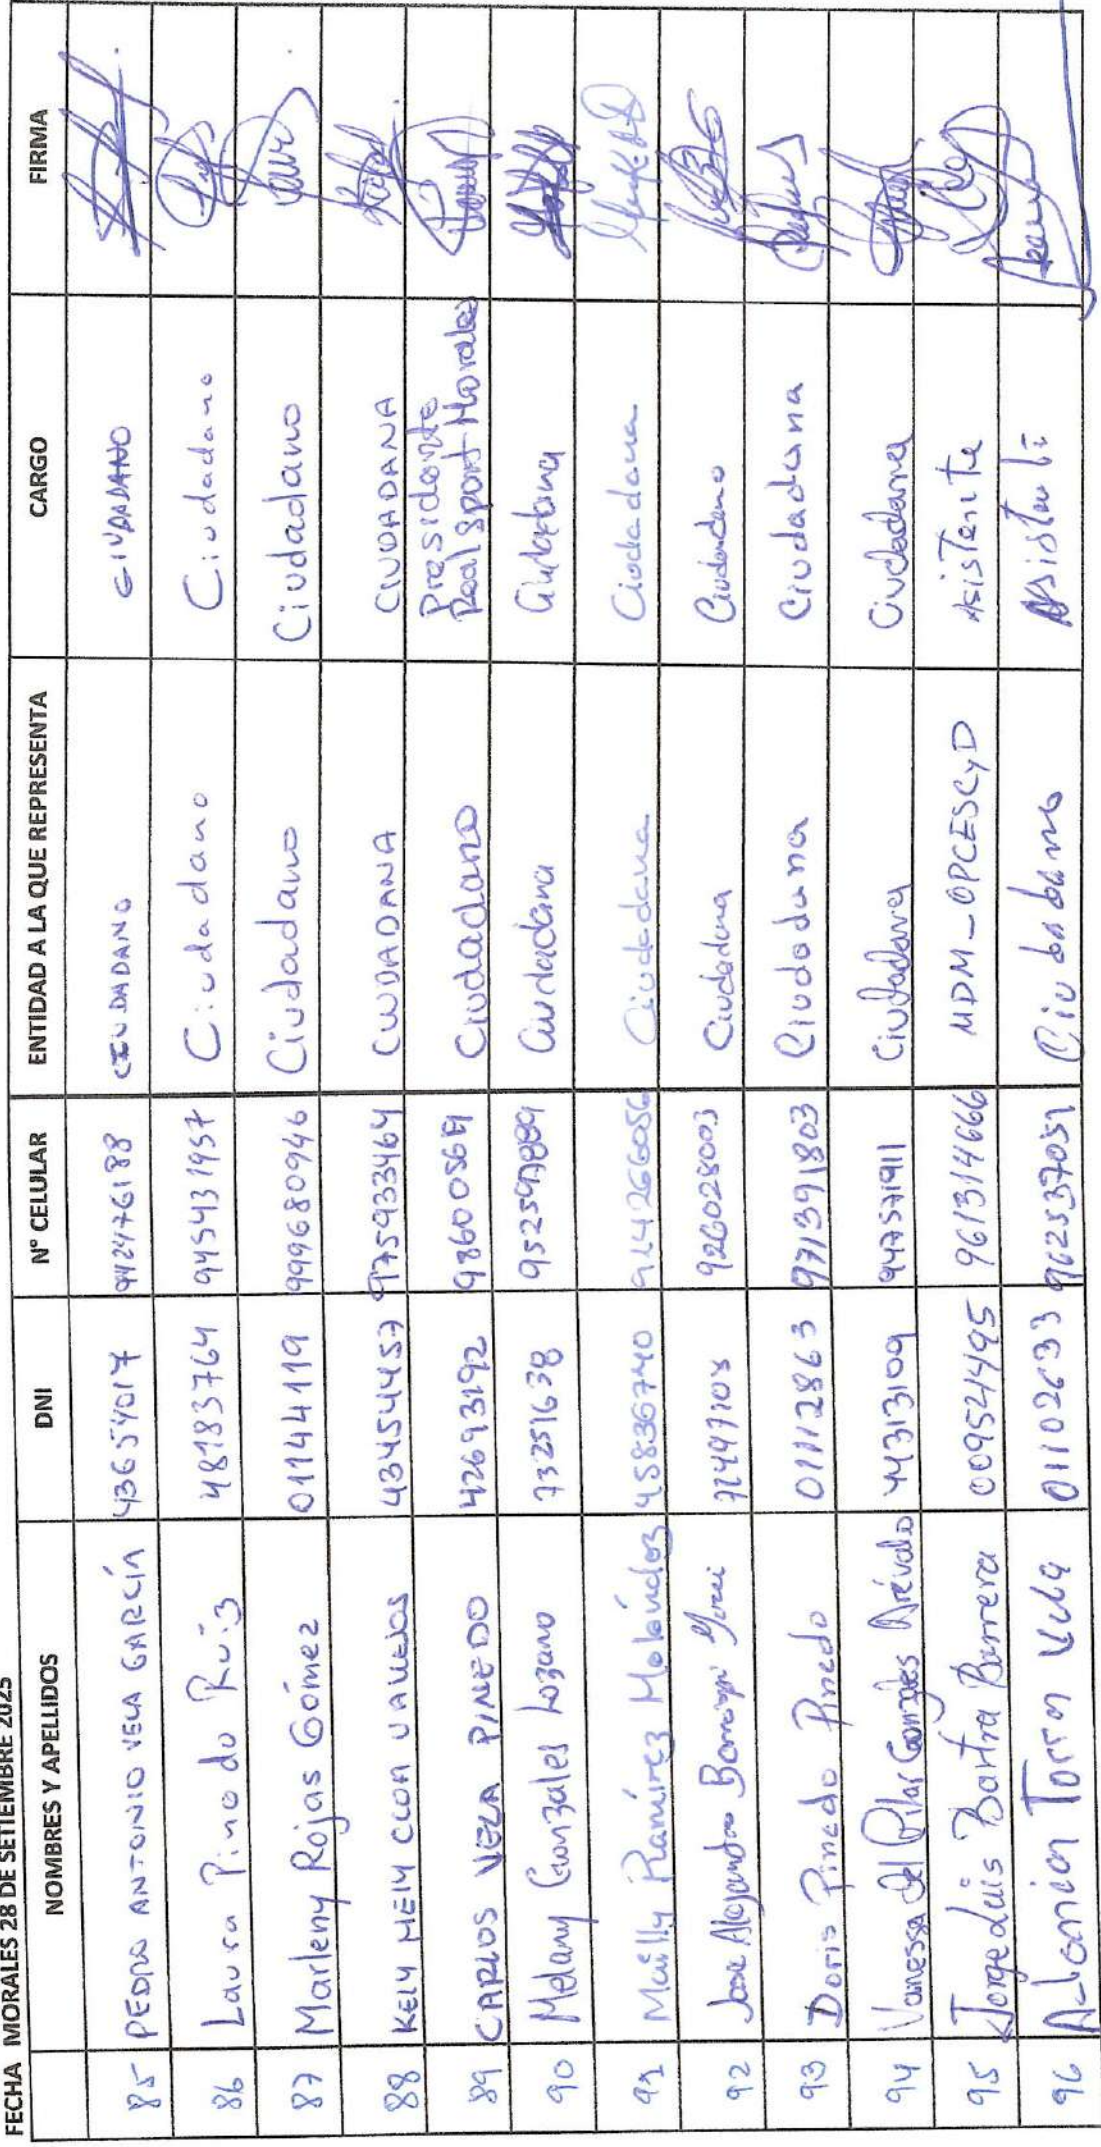 FECHA MORALES 28 DE SETIEMBRE 2025
NOMBRES Y APELLIDOS DNI N° CELULAR ENTIDAD A LA QUE REPRESENTA CARGO FIRMA
85 PEDRO ANTONIO VELA GARCÍA 43654017 942476188 CIUDADANO CIUDADANO
86 Laura Pinedo Ruiz 48183764 945431957 Ciudadano Ciudadano
87 Marleny Rojas Gómez 01144119 999680946 Ciudadano Ciudadano
88 KELY MELY CCOA VALLEJOS 43454457 975933464 CIUDADANA CIUDADANA
89 CARLOS VELA PINEDO 42693192 Ciudadano Presidente
Real Sport Morales
90 Melany Gonzales Lozano 73251638 Ciudadana Ciudadana
91 Mailly Ramírez Meléndez 45836740 914266056 Ciudadana Ciudadana
92 Jose Alejandro 926028003 Ciudadana Ciudadano
93 Doris Pinedo Pinedo 01112863 971391803 Ciudadana Ciudadana
94 Vanessa del Pilar Gonzales Arévalo 44313109 947571911 Ciudadana Ciudadana
95 Jorge Luis Bartra Barrera 00952495 961314666 MDM_OPCESCyD Asistente
96 Torres Vela 01102633 962537051 Ciudadano Asistente